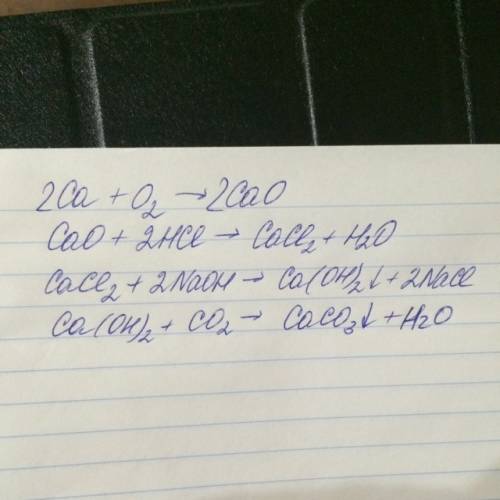 2Ca + O₂ → 2CaO
CaO + 2HCl → CaCl₂ + H₂O
CaCl₂ + 2NaOH → Ca(OH)₂↓ + 2NaCl
Ca(OH)₂ + CO₂ → CaCO₃↓ + H₂O